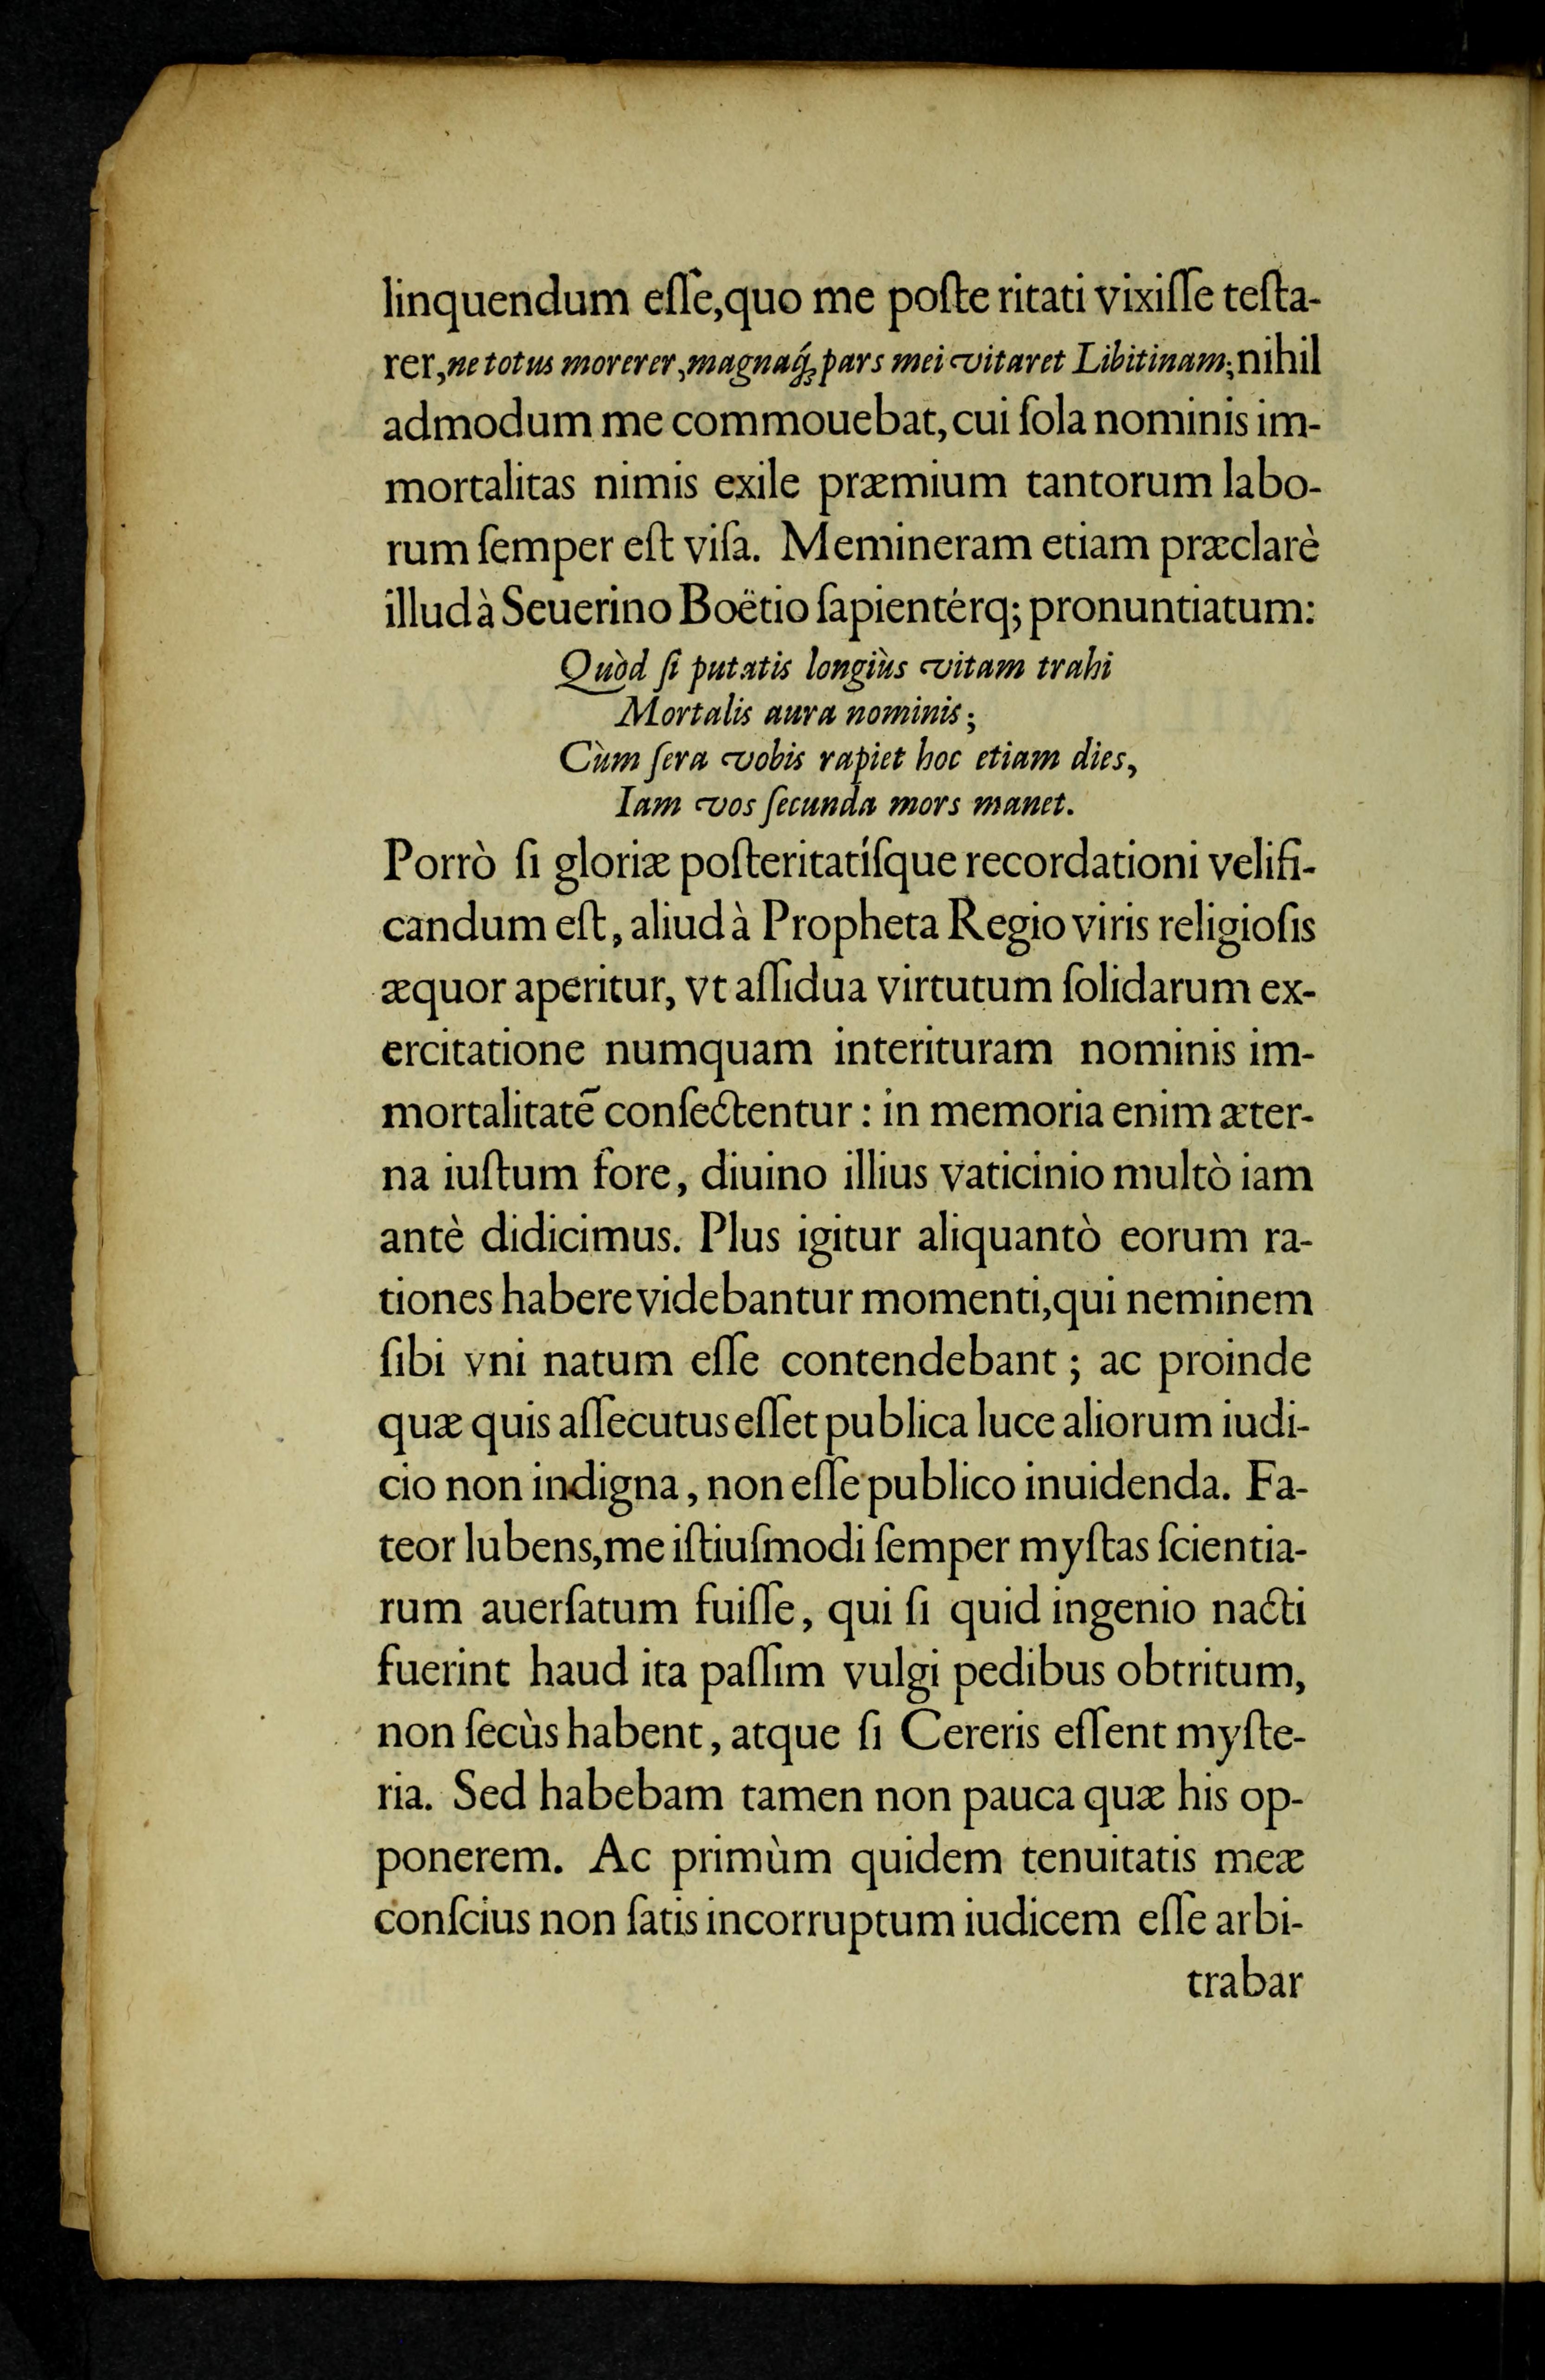 linquendum eſſe,quo me poſte ritati vixiſſe teſta-
rer,ne totus morerer,magnaq́ꝫ pars mei vitaret Libitinam;nihil
admodum me commouebat, cui ſola nominis im-
mortalitas nimis exile præmium tantorum labo-
rum ſemper eſt viſa. Memineram etiam præclarè
illud à Seuerino Boëtio ſapientérq; pronuntiatum:
Quòd ſi putatis longiùs vitam trahi
Mortalis aura nominis;
Cùm ſera vobis rapiet hoc etiam dies,
Iam vos ſecunda mors manet.
Porrò ſi gloriæ poſteritatíſque recordationi velifi-
candum eſt, aliud à Propheta Regio viris religioſis
æquor aperitur, vt aſſidua virtutum ſolidarum ex-
ercitatione numquam interituram nominis im-
mortalitatē conſectentur : in memoria enim æter-
na iuſtum fore, diuino illius vaticinio multò iam
antè didicimus. Plus igitur aliquantò eorum ra-
tiones habere videbantur momenti,qui neminem
ſibi vni natum eſſe contendebant ; ac proinde
quæ quis aſſecutus eſſet publica luce aliorum iudi-
cio non indigna, non eſſe publico inuidenda. Fa-
teor lubens,me iſtiuſmodi ſemper myſtas ſcientia-
rum auerſatum fuiſſe, qui ſi quid ingenio nacti
fuerint haud ita paſſim vulgi pedibus obtritum,
non ſecùs habent, atque ſi Cereris eſſent myſte-
ria. Sed habebam tamen non pauca quæ his op-
ponerem. Ac primùm quidem tenuitatis meæ
conſcius non ſatis incorruptum iudicem eſſe arbi-
trabar